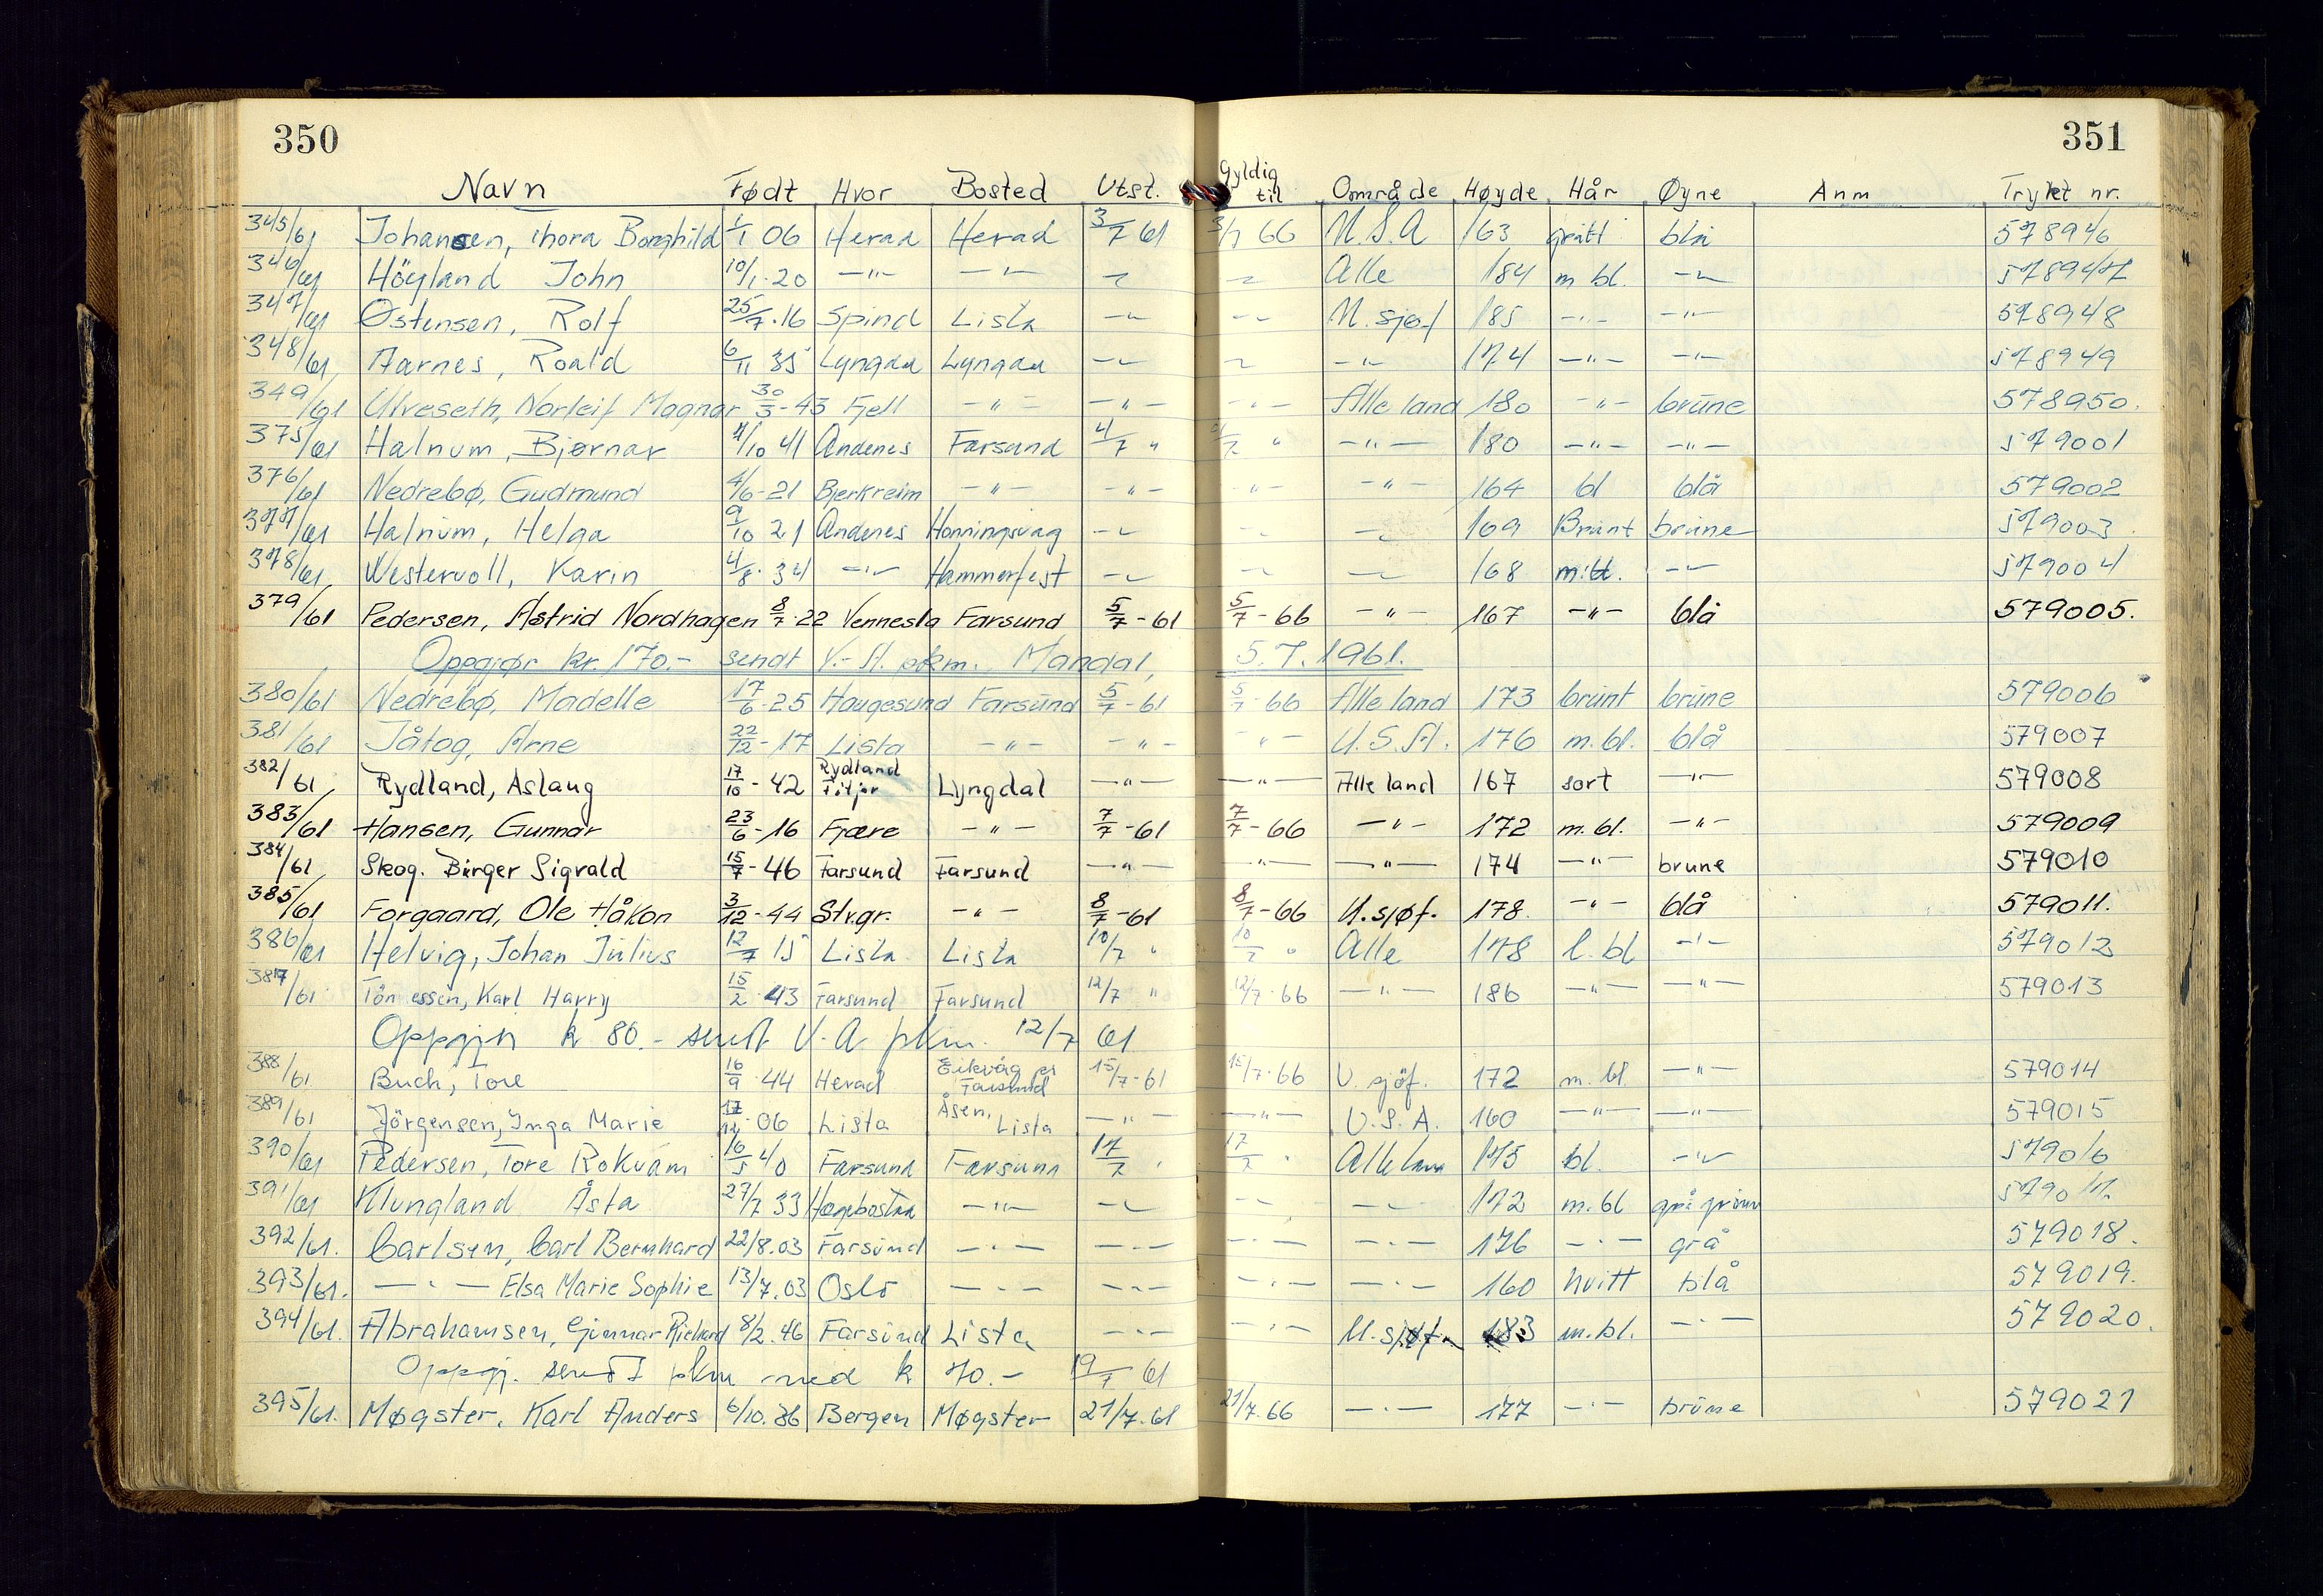 350
351
Navn Født Hvor Bosted Utst. Gyldig til Område Høyde Hår Øyne Anm Trykt nr.
345/61 Johansen, Thora Borghild 1/1 06 Herad Herad 3/7 61 3/7 66 U.S.A 163 grått blå 578946
346/61 Höyland John 10/1.20 —"— —"— —"— —"— Alle 184 m bl. —"— 578947
347/61 Østensen, Rolf 25/7.16 Spind Lista —"— —"— U. sjøf 185 —"— —"— 578948
348/61 Aarnes, Roald 6/11 35 Lyngdal Lyngdal —"— —"— —"— 174 —"— —"— 578949
349/61 Ulveseth, Norleif Magnar 30/3-43 Fjell —"— —"— —"— Alle land 180 —"— brune 578950.
375/61 Halnum, Bjørnar 4/10 41 Andenes Farsund 4/7 " 4/7 " —"— 180 —"— —"— 579001
376/61 Nedrebø, Gudmund 4/6-21 Bjerkreim —"— —"— —"— —"— 164 bl blå 579002
377/61 Halnum, Helga 9/10 21 Andenes Honningsvåg —"— —"— —"— 169 Brunt brune 579003.
378/61 Westervoll, Karin 4/8.34 —"— Hammerfest —"— —"— —"— 168 m:tt. —"— 579004
379/61 Pedersen, Astrid Nordhagen 8/7.22 Vennesla Farsund 5/7-61 5/7-66 —"— 167 —"— blå 579005.
Oppgjør kr. 170.- sendt V.-A. pkm. Mandal, 5.7.1961.
380/61 Nedrebø, Madelle 17/6-25 Haugesund Farsund 5/7-61 5/7-66 Alle land 173 brunt brune 579006
381/61 Jåtog, Arne 22/12-17 Lista —"— —"— —"— U.S.A. 176 m.bl. blå 579007
382/61 Rydland, Aslaug 17/10-42 Rydland Fitjar Lyngdal —"— —"— Alle land 167 sort —"— 579008
383/61 Hansen, Gunnar 23/6-16 Fjære —"— 7/7-61 7/7-66 —"— 172 m.bl. —"— 579009
384/61 Skog. Birger Sigvald 15/7-46 Farsund Farsund —"— —"— —"— 174 —"— brune 579010
385/61 Forgaard, Ole Håkon 3/12-44 Stv.gr. —"— 8/7-61 8/7-66 U.sjøf. 178. —"— blå 579011.
386/61 Helvig, Johan Julius 12/7 15 Lista Lista 10/7 " 10/7 " Alle 178 l. bl —"— 579012
387/61 Tönnessen, Karl Harry 15/2.43 Farsund Farsund 12/7 " 12/7.66 —"— 186 —"— —"— 579013
Oppgjør k 80.- sendt V.A. pkm. 12/7 61
388/61 Buch, Tore 16/9.44 Herad Eikvåg pr Farsund 15/7-61 15/7.66 U. sjöf. 172 m. bl. —"— 579014
389/61 Jörgensen, Inga Marie 17/12.06 Lista Åsen, Lista —"— —"— U.S.A. 160 —"— —"— 579015
390/61 Pedersen, Tore Rokvam 16/5 40 Farsund Farsund 17/7 " 17/7 " Alle land 175 bl. —"— 579016
391/61 Klungland Åsta 27/7 33 Hægebostad —"— —"— —"— —"— 172 m.bl grå grønn 579017.
392/61. Carlsen, Carl Bernhard 22/8.03 Farsund —"— —"— —"— —"— 176 —"— grå 579018.
393/61. —"— Elsa Marie Sophie 13/7.03 Oslo —"— —"— —"— —"— 160 hvitt blå 579019.
394/61. Abrahamsen, Gunnar Richard 8/2.46 Farsund Lista —"— —"— U.sjøf. 183 m.bl. —"— 579020.
Oppgj. sendt pkm med k 70.- 19/7 61
395/61. Møgster, Karl Anders 6/10.36 Bergen Møgster 21/7.61 21/7.66 —"— 177 —"— brune 579021